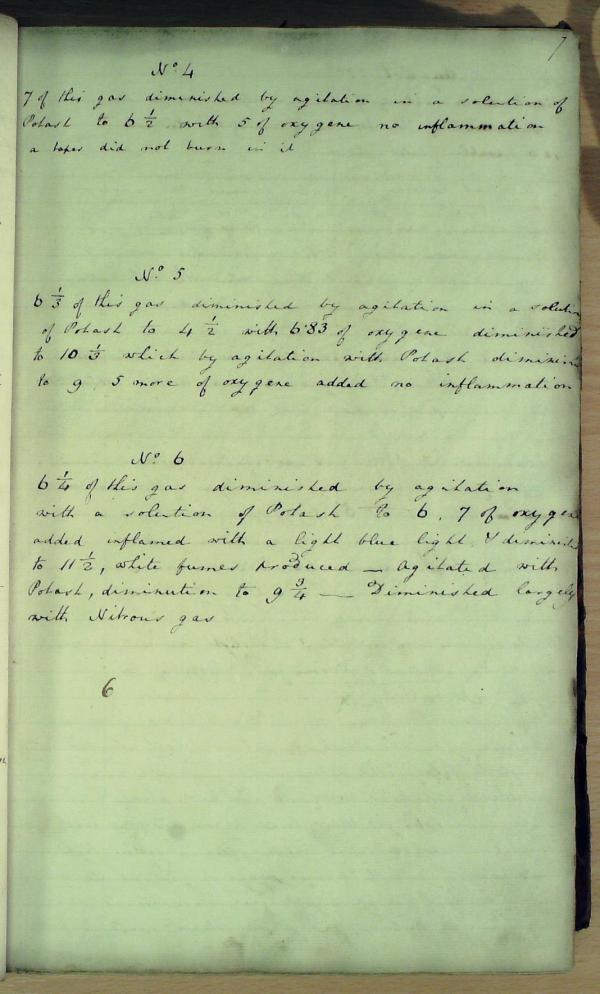 7
No 4
7 of this gas diminished by agitation in a solution of
Potash to 6 1/2 with 5 of oxygene no inflammation
a taper did not burn in it
No 5
6 1/3 of this gas diminished by agitation in a solution
of Potash to 4 1/2 with 6.83 of oxygene diminished
to 10 1/3 which by agitation with Potash diminish
to 9. 5 more of oxygene added no inflammation
No 6
6 1/4 of this gas diminished by agitation
with a solution of Potash to 6. 7 of oxygene
added inflamed with a light blue light & diminished
to 11 1/2, white fumes produced — Agitated with
Potash, diminution to 9 3/4 — Diminished largely
with Nitrous gas
6